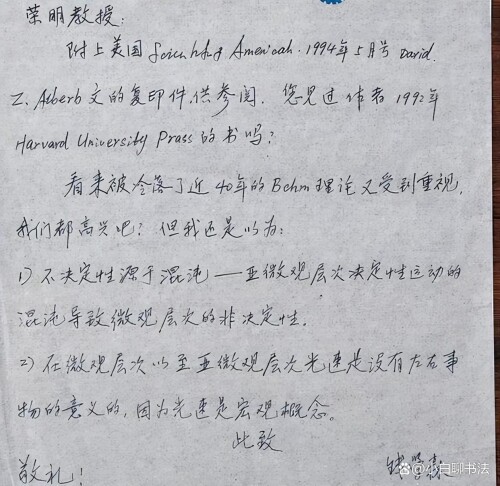 荣明教授:
附上美国 Scientific American. 1994年5月号 David.
Z. Alberb 文的复印件,供参阅. 您见过作者1992年
Harvard University Prass 的书吗?
看来被冷落了近40年的Bohm理论又受到重视,
我们都高兴吧? 但我还是以为:
1) 不决定性源于混沌——亚微观层次决定性运动的
混沌导致微观层次的非决定性.
2) 在微观层次以至亚微观层次光速是没有左右事
物的意义的,因为光速是宏观概念。
此致
敬礼!
钱学森
小白聊书法